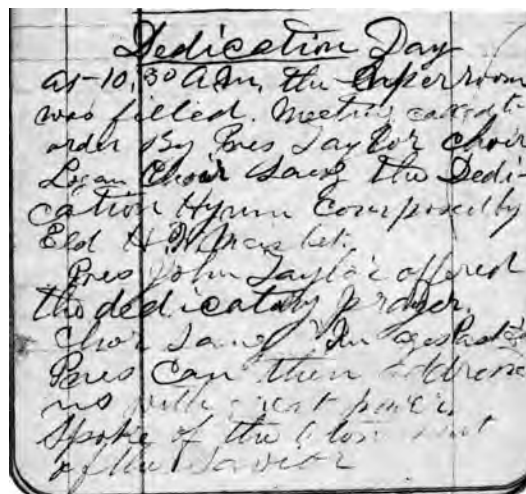 Dedication Day
at 10,30 A.M. the upper room
was filled. Meeting called to
order By Pres Taylor choir
Logan Choir Sang the Dedi-
cation Hymn Composed by
Eld H
Pres John Taylor offered
the dedicatory prayer.
Choir Sang
Pres Can then address
us with great power
Spoke of the
of the Savior